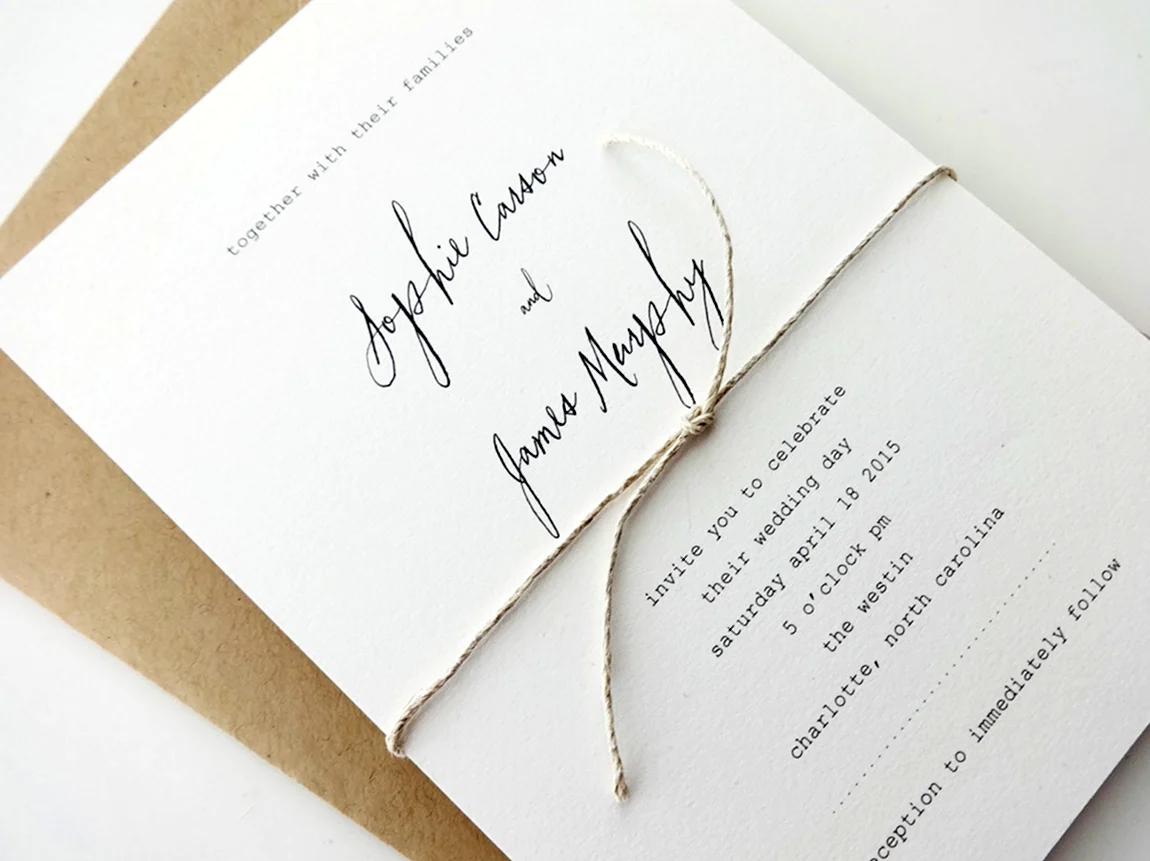 together with their families
Sophie Carson
and
James Murphy
invite you to celebrate
their wedding day
saturday april 18 2015
5 o'clock pm
the westin
charlotte, north carolina
to immediately follow